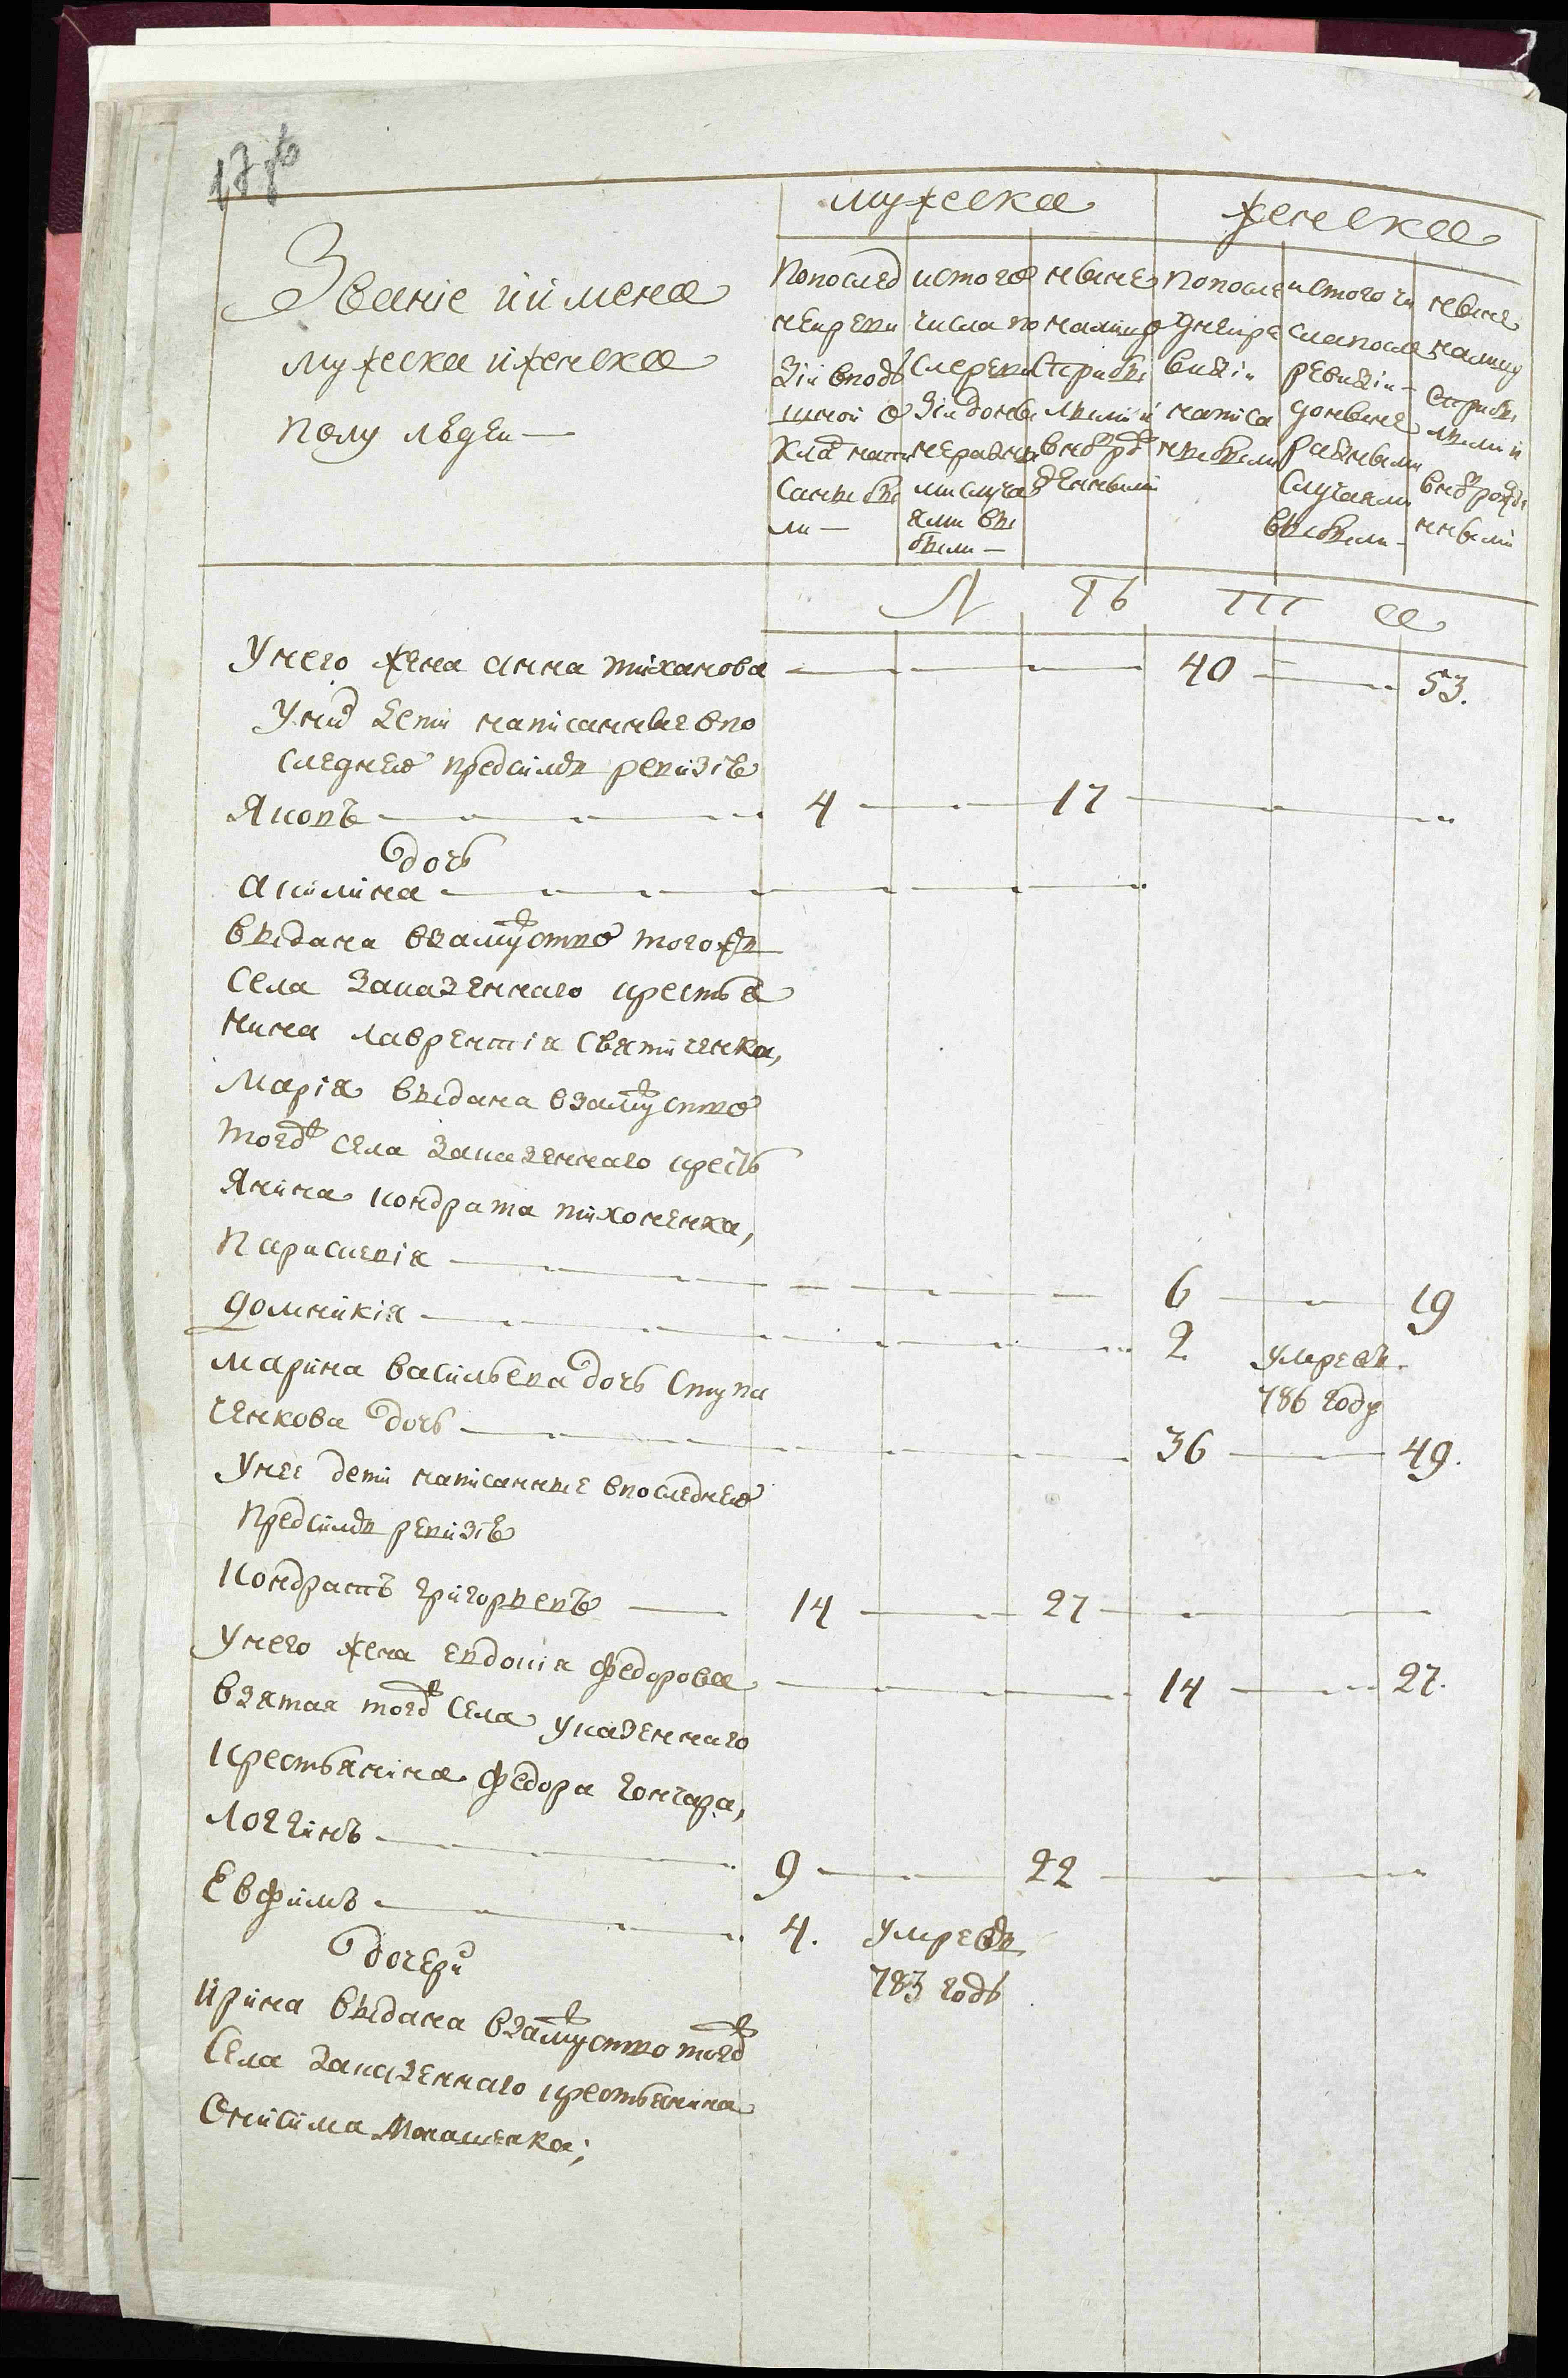 мужеска
женска
Званіе и имена
мужеска и женска
полу людеи —
Попослед
неиреви
зіи вподу
шнои о
клад напи
саны бы
ли —
истого
числа по
сле реви
зіи доны
не разны
ми случа
ями вы
были —
ныне
налицо
сприбы
лыми и
вновь рож
денными
Попосле
днеи ре
визіи
написа
ны были
истого чи
сла после
ревизіи —
доныне
разными
случаями
выбыли —
ныне
налицо
сприбы
лыми и
вновь рожде
нными
Л Ѣ Т а
Унего жена анна тиханова 40 53.
Уних дети написанные впо
следнеи предсимъ ревизіи
Яковъ 4 17
дочь
акилина
выдана взамужство тогожъ
Села заказеннаго крестья
нина лаврентія Святиченка,
Марія выдана взамужство
тогож села заказеннаго кресть
янина кондрата тихоненка,
Парасковія 6 19
домникія 2 умре въ
786 году
марина васильева дочь Ступа
ченкова дочь 36 49.
Унее дети написанные впоследнеи
предсимъ ревизіи
Кондратъ григорьевъ 14 27
Унего жена евдокія федорова 14 27.
взятая тогож села указеннаго
крестьянина федора гончара,
логгинъ 9 22
Евфимъ 4. умре въ
783 годъ
дочери
ирина выдана взамужство тогож
Села заказеннаго крестьянина
Онисима